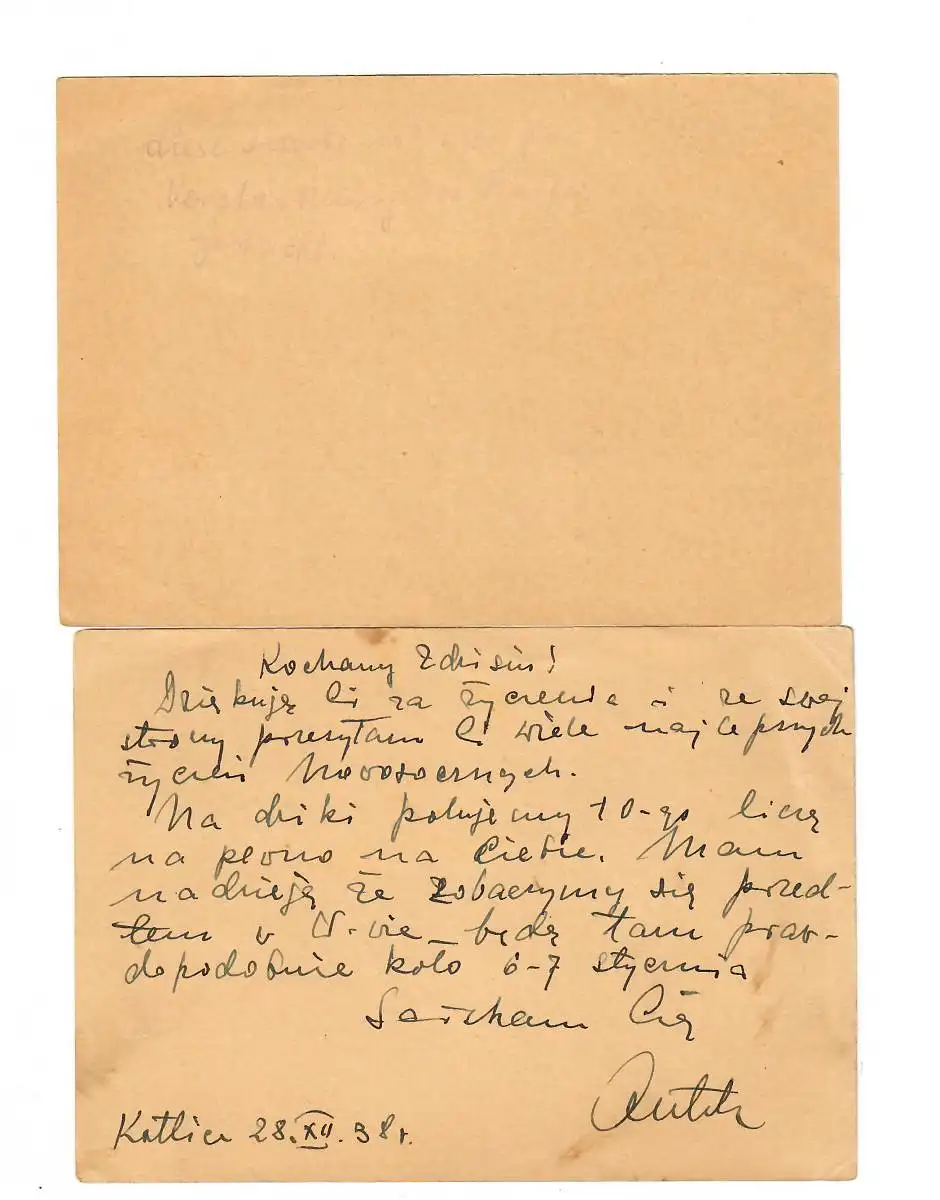 Kochany Zdzisiu!
Dziękuję Ci za życzenia i ze swej
strony przesyłam Ci wiele najlepszych
życzeń Noworocznych.
Na dziki polujemy 10-go liczę
na pewno na Ciebie. Mam
nadzieję że zobaczymy się przed-
tem w W-wie będę tam praw-
dopodobnie koło 6-7 stycznia
Ściskam Cię
Kotlice 28.XII.38r.